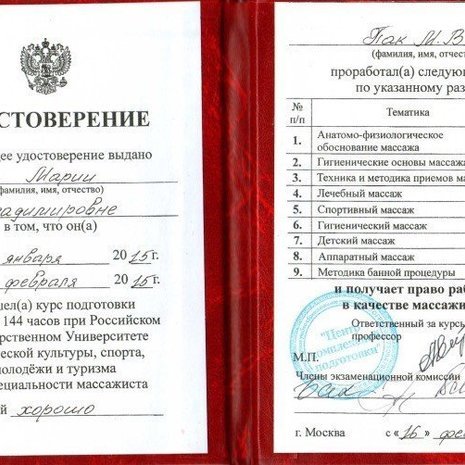 СТОВЕРЕНИЕ
ее удостоверение выдано
Марии
фамилия, имя, отчество)
адимировне
в том, что он(а)
января 2015г.
февраля 2015г.
шел(а) курс подготовки
144 часов при Российском
арственном Университете
ческой культуры, спорта,
молодёжи и туризма
ециальности массажиста
й хорошо
Пак М.В.
(фамилия, имя, отчест
проработал(а) следующ
по указанному раз
№ п/п Тематика
1. Анатомо-физиологическое обоснование массажа
2. Гигиенические основы массажа
3. Техника и методика приемов ма
4. Лечебный массаж
5. Спортивный массаж
6. Гигиенический массаж
7. Детский массаж
8. Аппаратный массаж
9. Методика банной процедуры
и получает право раб
в качестве массажи
Ответственный за курсы
профессор
"Центр
подготовки
М.П.
Члены экзаменационной комиссии
г. Москва с «16» фе